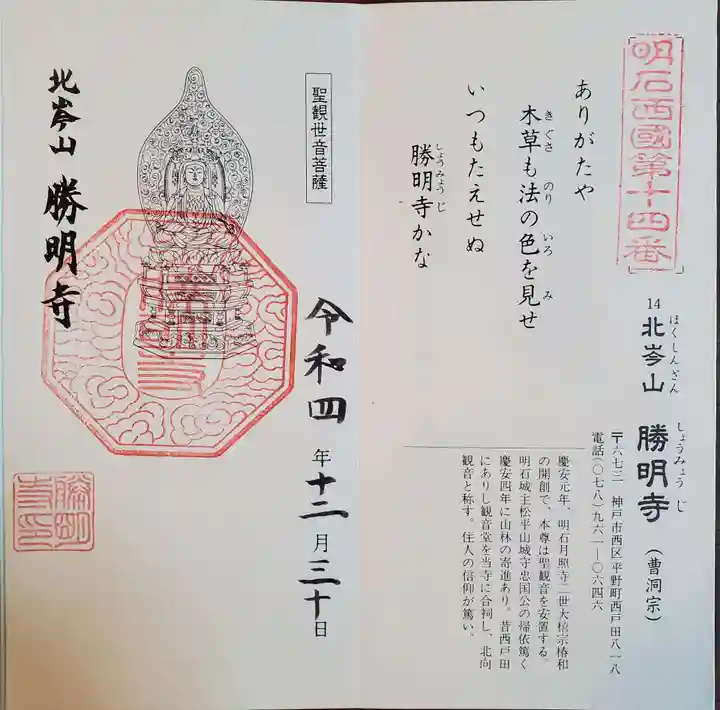 明石西國第十四番
14 北岑山 勝明寺 (曹洞宗)
ほくしんざん しょうみょうじ
〒六七三 神戸市西区平野町西戸田八一八
電話(〇七八)九六一―〇六四六
ありがたや
木草も法の色を見せ
きぐさ のり いろ み
いつもたえせぬ
勝明寺かな
しょうみょうじ
慶安元年、明石月照寺二世大榰宗椿和
の開創で、本尊は聖観音を安置する。
明石城主松平山城守忠国公の帰依篤く
慶安四年に山林の寄進あり。昔西戸田
にありし観音堂を当寺に合祠し、北向
観音と称す。住人の信仰が篤い。
聖観世音菩薩
令和四年十二月三十日
北岑山 勝明寺
勝明
寺印